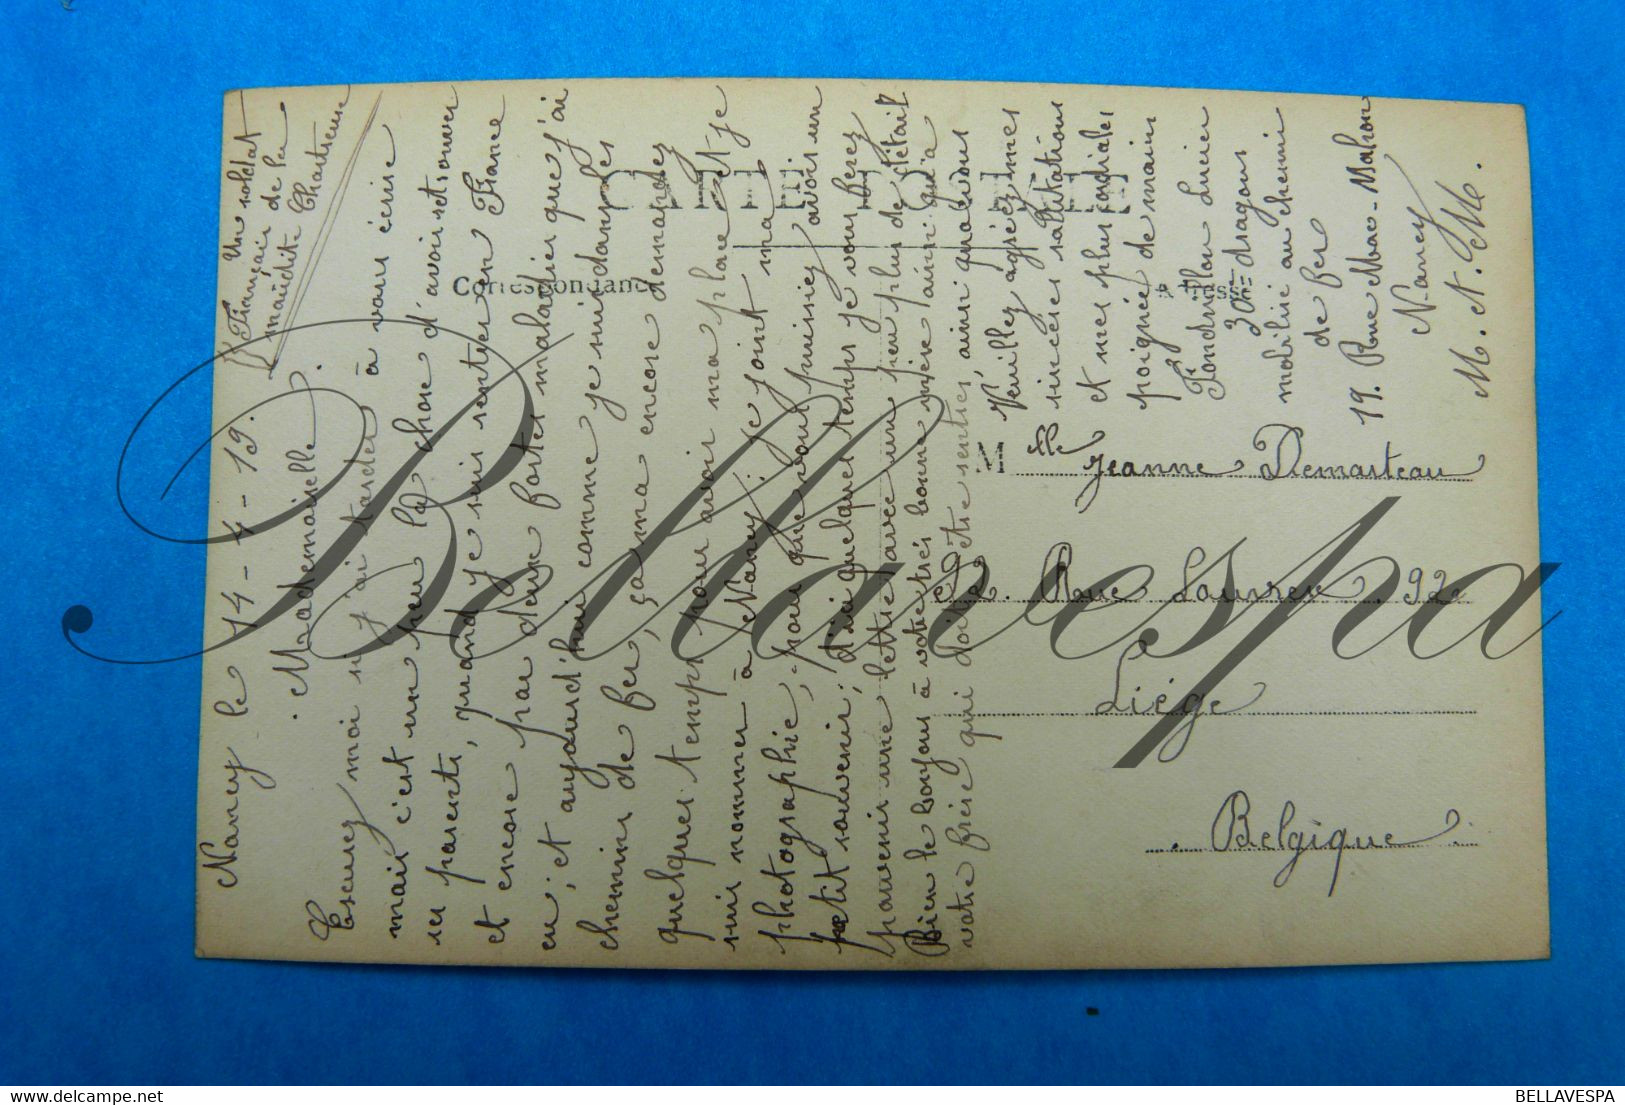 Nancy le 14-4-19.
Un soldat
Français de la
maudite Chartreuse
Mademoiselle
Escusez moi si j'ai tarder à vous écrire
mais c'est un peu la chose d'avoir retrouver
ses parents, quand je suis rentrer en France
et encore par deux fortes maladies que j'ai
eu, et aujourd'hui comme je suis dans les
chemins de fer, ça m'a encore demandez
quelques temps pour avoir ma place et je
suis nommer à Nancy; je joint ma
photographie, pour que vous puissiez avoir un
petit souvenir; d'ici quelques temps je vous ferez
parvenir une lettre avec un peu plus de détail
Bien le bonjour à votre très bonne mère ainsi qu'a
votre frère qui doit être rentrer, ainsi qu'a vous
Veuillez agréez mes
sincères salutations
et mes plus cordiales
poignée de main
Lucien
30e dragons
mobilisé au chemin
de fer
19. Rue Mac-Mahon
Nancy
M. et M.
Correspondance
CARTE POSTALE
Adresse
Mlle Jeanne Demarteau
Rue 92
Liége
Belgique
Bellavespa
BELLAVESPA